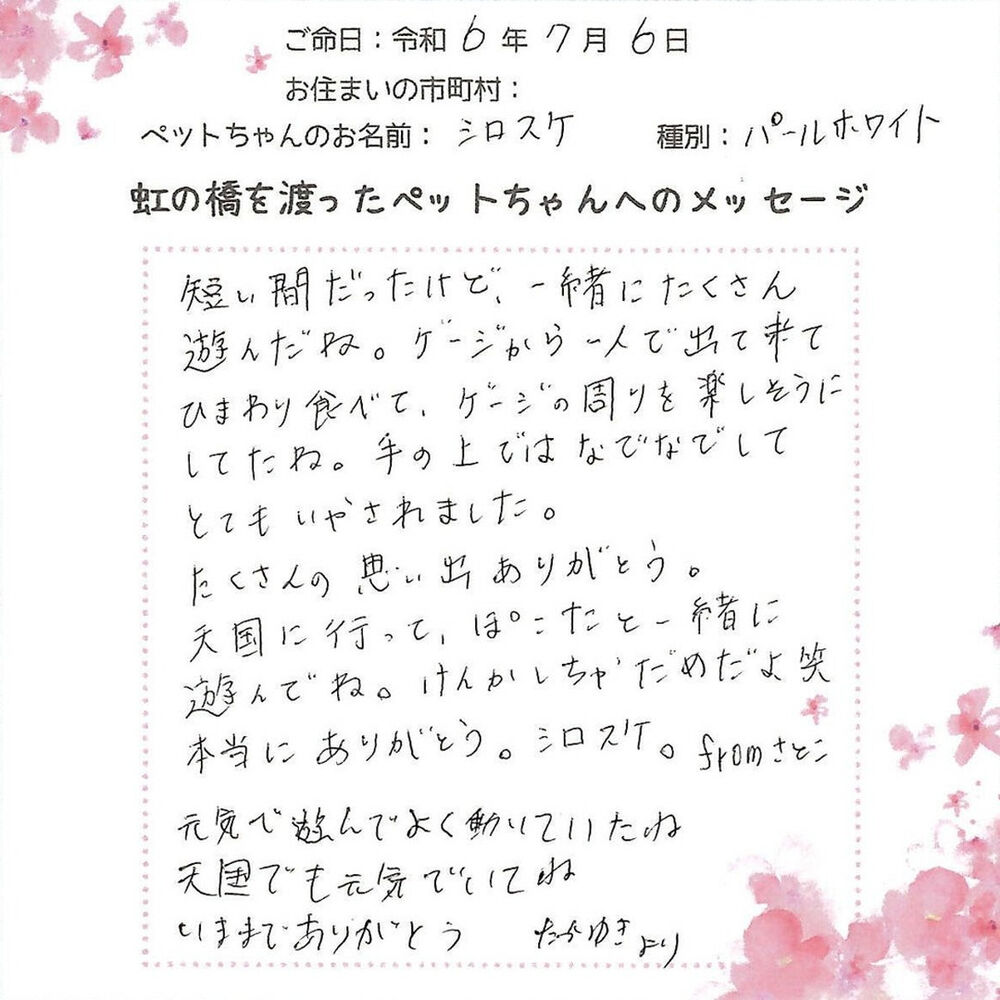 ご命日：令和 6 年 7 月 6 日
お住まいの市町村：
ペットちゃんのお名前： シロスケ 種別： パールホワイト
虹の橋を渡ったペットちゃんへのメッセージ
短い間だったけど、一緒にたくさん
遊んだね。ゲージから一人で出て来て
ひまわり食べて、ゲージの周りを楽しそうに
してたね。手の上ではなでなでして
とてもいやされました。
たくさんの思い出ありがとう。
天国に行って、ぽこたと一緒に
遊んでね。けんかしちゃだめだよ笑
本当にありがとう。シロスケ。fromさとこ
元気で遊んでよく動いていたね
天国でも元気でいてね
いままでありがとう たかゆきより